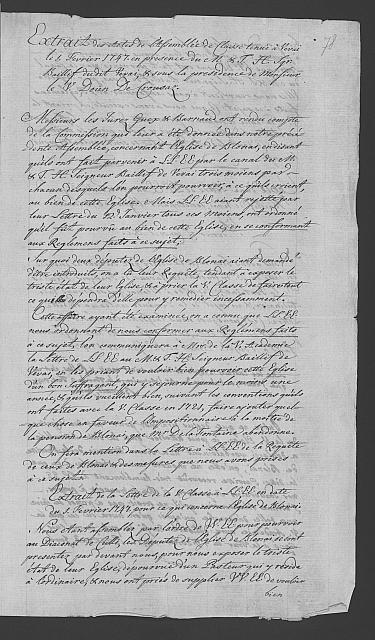 78
Extrait des Actes de l'Assemblée de Classe tenue à Vevai
le 1. Fevrier 1747. en presence du M. & T. H. Sgr.
Baillif dudit Vevai, & sous la presidence de Monsieur
le V. Doien De Crousaz.
Messieurs les Jurez Guex & Barnaud ont rendu compte
de la Commission qui leur a été donnée dans notre précé-
dente Assemblée, concernant l'Eglise de Blonai, en disant
qu'ils ont fait parvenir à LL.EE. par le canal du M.
& T. H. Seigneur Baillif de Vevai trois moiens par
chacun desquels l'on pourroit pourvoir, à ce qu'ils croient,
au bien de cette Eglise; Mais LL.EE. aiant rejetté par
leur Lettre du 12. Janvier tous ces Moiens, ont ordonné
qu'il fut pourvû au bien de cette Eglise, en se conformant
aux Reglemens faits à ce sujet;
Sur quoi deux deputez de l'Eglise de Blonai aiant demandé
d'être introduits, on a lû leur Requête, tendant à exposer le
triste état de leur Eglise, & à prier la V. Classe de faire tout
ce qui dépendra d'Elle pour y remedier incessamment.
Cette affaire ayant été examinée, on a connu que LL.EE.
nous ordonnant de nous conformer aux Reglemens faits
à ce sujet, l'on communiquera à Mrs. de la V. Academie
la Lettre de LL.EE. au M. & T. H. Seigneur Baillif de
Vevai, en les priant de vouloir bien pourvoir cette Eglise
d'un bon Suffragant, qui y sejourne pour le moins une
année, & qu'ils veuillent bien, suivant les conventions qu'ils
ont faites avec la V. Classe en 1721, faire ajouter quel-
que chose en faveur de l'Impositionnaire à la moitié de
la pension de Blonai, que Mr. De la Fontaine abandonne.
On fera mention dans la Lettre à LL.EE. de la Requête
de ceux de Blonai & des mesures que nous avons prises
à ce sujet.
Extrait de la Lettre de la V. Classe à LL.EE. en date
du 1. Fevrier 1747. pour ce qui concerne l'Eglise de Blonai.
Nous étant assemblés par l'ordre de VV.EE. pour pourvoir
au Diaconat de Lully, les Deputez de l'Eglise de Blonai se sont
presentez par devant nous, pour nous exposer le triste
état de leur Eglise, depourvue d'un Pasteur qui y réside
à l'ordinaire, & nous ont priés de supplier VV.EE. de vouloir
bien